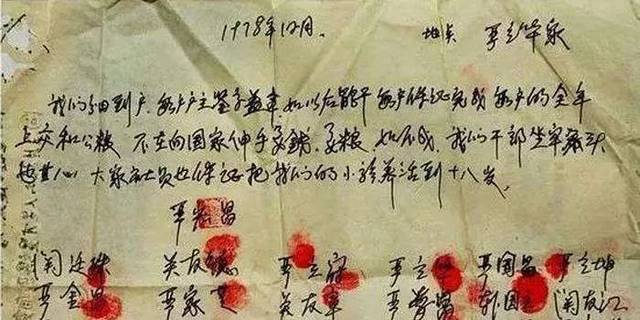 1978年12月. 地点 严立华家
我们分田到户,每户户主签字盖章,如以后能干,每户保证完成每户的全年
上交和公粮,不在向国家伸手要钱要粮,如不成,我们干部坐牢杀头
也甘心,大家社员也保证把我们的小孩养活到十八岁。
严宏昌
关廷珠 关友德 严立符 严立 严国昌 严立坤
严金昌 严家芝 关友章 严学昌 韩国 关友江